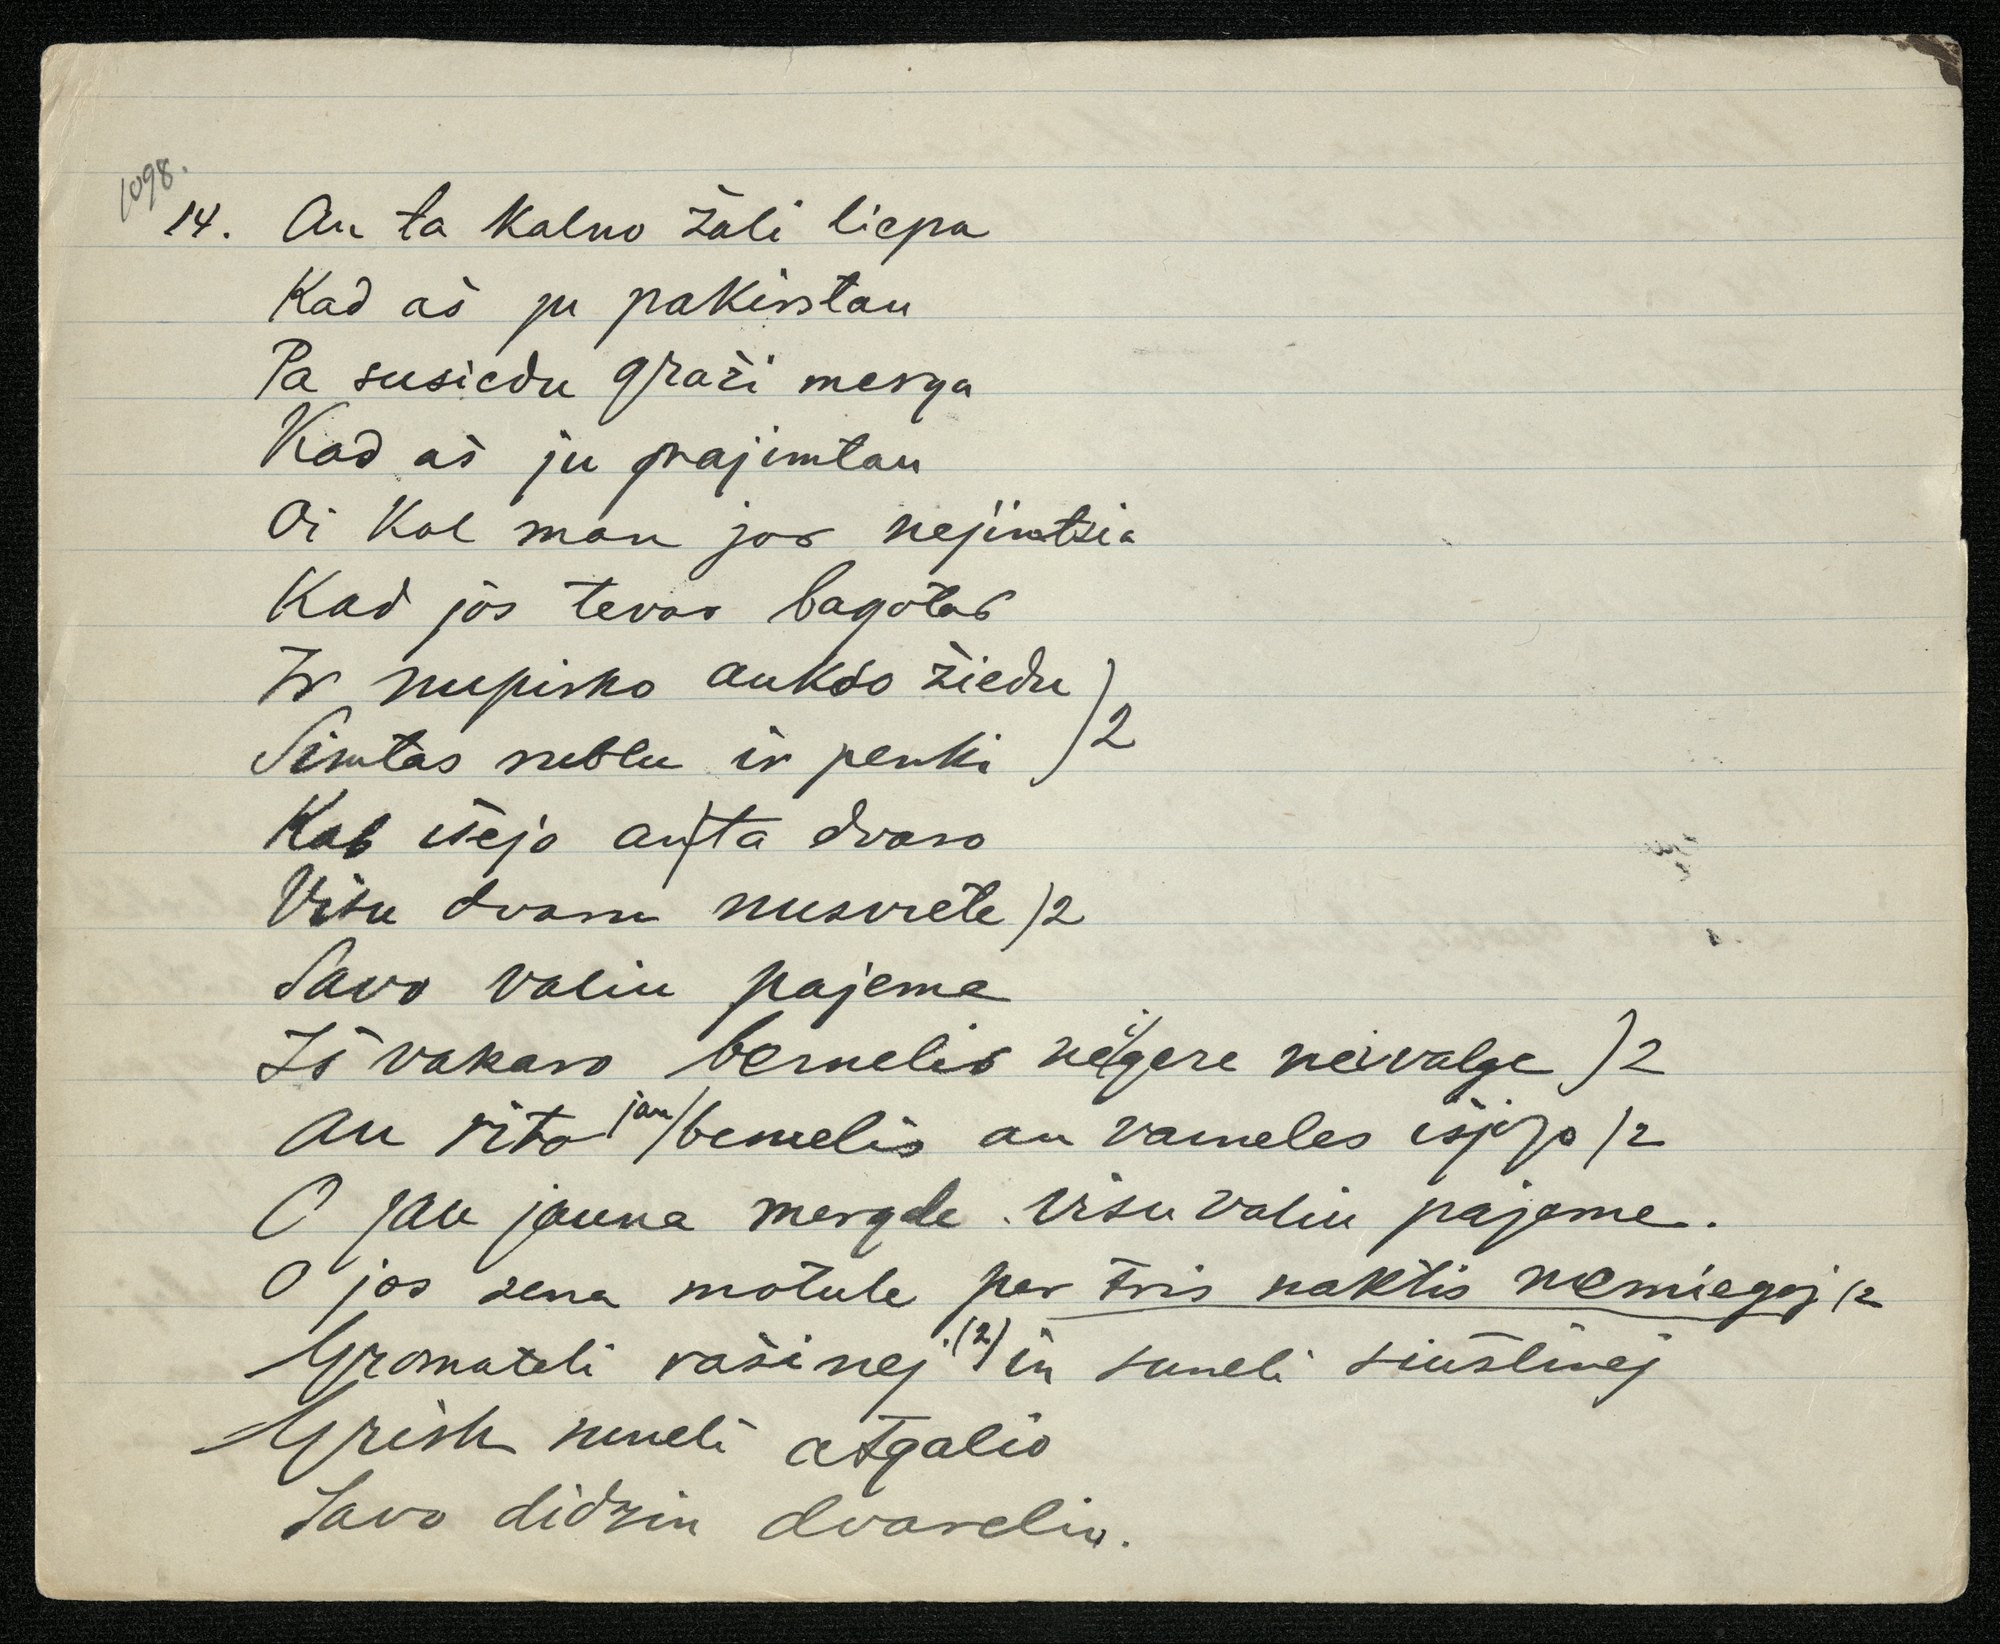 1098.
14. An ta kalno žali liepa
Kad aš ju pakirstau
Pa susiedu graži merga
Kad aš ju pajimtau
Oi kol man jos nejimtsia
Kad jos tevas bagotas
Ir nupirko aukso žiedu )2
Simtas rublu ir penki
Kab išejo an/ta dvaro
Visu dvaru nusviete )2
Savo valiu pajeme
Iš vakaro bernelis neigere neivalge )2
An rito jau/bernelis an vaineles išjojo )2
O jau jauna mergele visu valiu pajeme.
O jos sena motule per tris naktis nemiegoj )2
Gromateli rašinej (2) in suneli siuštinej
Grish suneli atgalio
Savo didziu dvareliu.